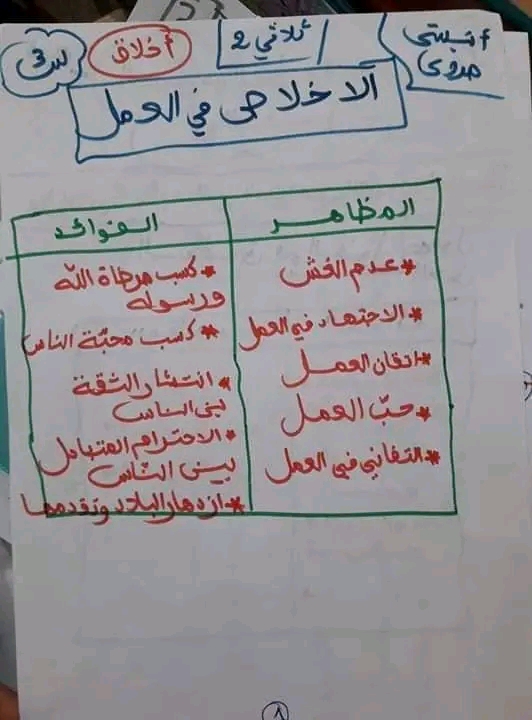 آنستي
صدوى
ثلاثي 2
أخلاق
س3
الاخلاص في العمل
المظاهر
الفوائد
* عدم الغش
* الاجتهاد في العمل
* اتقان العمل
* حبّ العمل
* التفاني في العمل
* كسب مرضاة الله
ورسوله
* كسب محبّة الناس
* انتشار الثقة
بين الناس
* الاحترام المتبادل
بين النّاس
* ازدهار البلاد وتقدمها